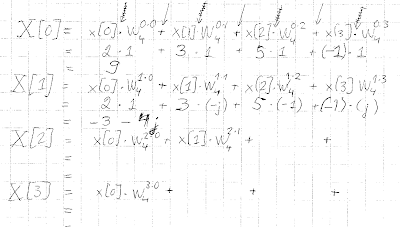 X[0] = x[0]·W₄⁰·⁰ + x[1]·W₄⁰·¹ + x[2]·W₄⁰·² + x[3]·W₄⁰·³
= 2·1 + 3·1 + 5·1 + (-1)·1
= 9
X[1] = x[0]·W₄¹·⁰ + x[1]·W₄¹·¹ + x[2]·W₄¹·² + x[3]W₄¹·³
= 2·1 + 3·(-j) + 5·(-1) + (-1)·(j)
= -3 - 4j
X[2] = x[0]·W₄²·⁰ + x[1]·W₄²·¹ + +
=
=
X[3] = x[0]·W₄³·⁰ + + +
=
=